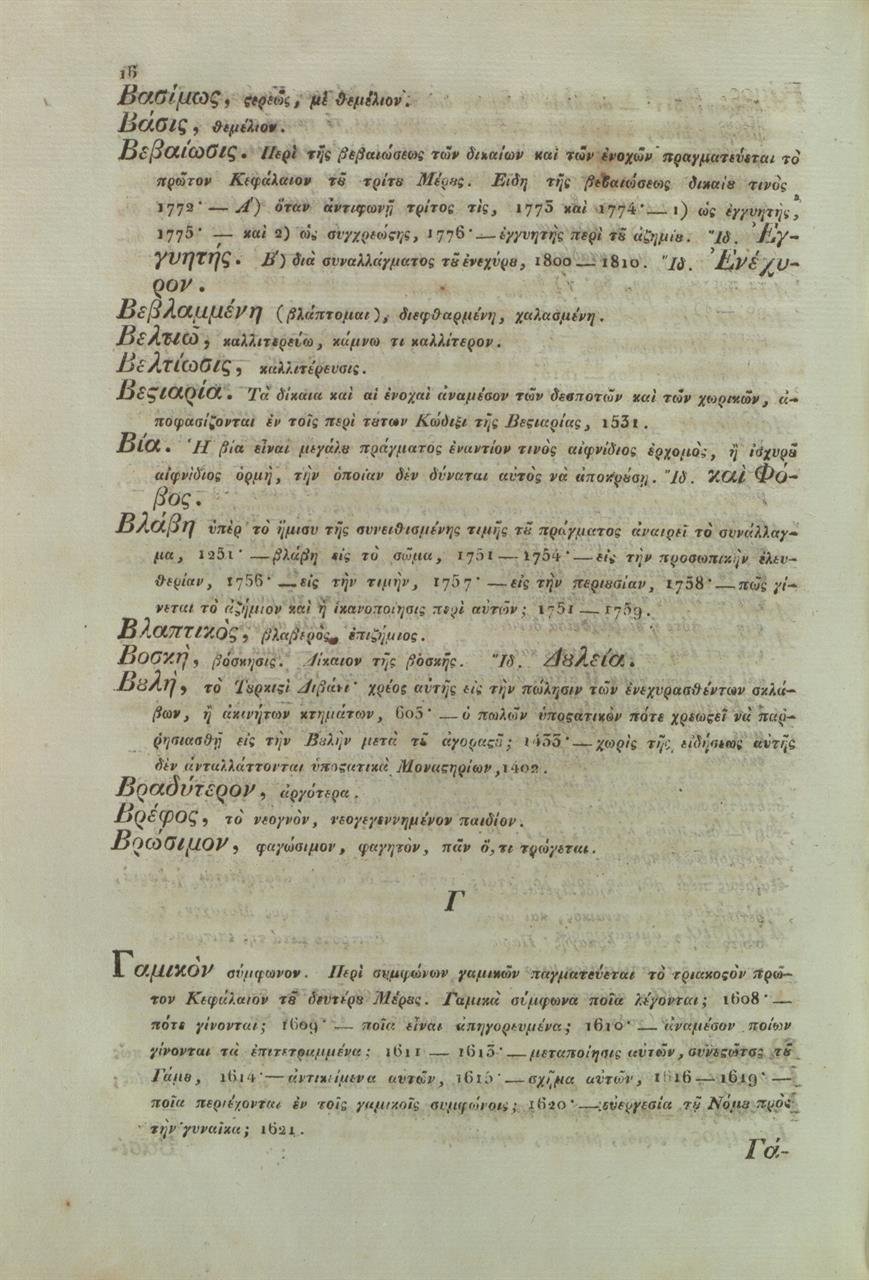 16
Βασίμως, ϛερεῶς, μὲ θεμέλιον.
Βάσις, θεμέλιον.
Βεβαίωσις. Περὶ τῆς βεβαιώσεως τῶν δικαίων καὶ τῶν ἐνοχῶν πραγματεύεται τὸ
πρῶτον Κεφάλαιον τȣ͂ τρίτȣ Μέρȣς. Εἴδη τῆς βεβαιώσεως δικαίȣ τινὸς
1772· — Α') ὅταν ἀντιφωνῇ τρίτος τὶς, 1773 καὶ 1774· — 1) ὡς ἐγγυητὴς,
1775· — καὶ 2) ὡς συγχρεώϛης, 1776· — ἐγγυητὴς περὶ τȣ͂ ἀζημίȣ. Ἴδ. Ἐγ-
γυητής. Β') διὰ συναλλάγματος τȣ͂ ἐνεχύρȣ, 1800 — 1810. Ἴδ. Ἐνέχυ-
ρον.
Βεβλαμμένη (βλάπτομαι), διεφθαρμένη, χαλασμένη.
Βελτιῶ, καλλιτερεύω, κάμνω τι καλλίτερον.
Βελτίωσις, καλλιτέρευσις.
Βεϛιαρία. Τὰ δίκαια καὶ αἱ ἐνοχαὶ ἀναμέσον τῶν δεσποτῶν καὶ τῶν χωρικῶν, ἀ-
ποφασίζονται ἐν τοῖς περὶ τȣ́των Κώδιξι τῆς Βεϛιαρίας, 1531.
Βία. Ἡ βία εἶναι μεγάλȣ πράγματος ἐναντίον τινὸς αἰφνίδιος ἐρχομὸς, ἢ ἰσχυρὰ
αἰφνίδιος ὁρμὴ, τὴν ὁποίαν δὲν δύναται αὐτὸς νὰ ἀποκρȣ́σῃ. Ἴδ. καὶ Φό-
βος.
Βλάβη ὑπὲρ τὸ ἥμισυ τῆς συνειθισμένης τιμῆς τȣ͂ πράγματος ἀναιρεῖ τὸ συνάλλαγ-
μα, 1251· — βλάβη εἰς τὸ σῶμα, 1751 — 1754· — εἰς τὴν προσωπικὴν ἐλευ-
θερίαν, 1756· — εἰς τὴν τιμὴν, 1757· — εἰς τὴν περιȣσίαν, 1758· — πῶς γί-
νεται τὸ ἀζήμιον καὶ ἡ ἱκανοποίησις περὶ αὐτῶν; 1751 — 1759.
Βλαπτικὸς, βλαβερὸς, ἐπιζήμιος.
Βοσκὴ, βόσκησις. Δίκαιον τῆς βοσκῆς. Ἴδ. Δȣλεία.
Βȣλὴ, τὸ Τȣρκιϛὶ Διβάνι· χρέος αὐτῆς εἰς τὴν πώλησιν τῶν ἐνεχυρασθέντων σκλά-
βων, ἢ ἀκινήτων κτημάτων, 605· — ὁ πωλῶν ὑποϛατικὸν πότε χρεωϛεῖ νὰ παρ-
ρησιασθῇ εἰς τὴν Βȣλὴν μετὰ τȣ͂ ἀγοραϛȣ͂; 1433· — χωρὶς τῆς εἰδήσεως αὐτῆς
δὲν ἀνταλλάττονται ὑποϛατικὰ Μοναϛηρίων, 1402.
Βραδύτερον, ἀργότερα.
Βρέφος, τὸ νεογνὸν, νεογεγεννημένον παιδίον.
Βρώσιμον, φαγώσιμον, φαγητὸν, πᾶν ὅ,τι τρώγεται.
Γ
Γαμικὸν σύμφωνον. Περὶ συμφώνων γαμικῶν παγματεύεται τὸ τριακοϛὸν πρῶ-
τον Κεφάλαιον τȣ͂ δευτέρȣ Μέρȣς. Γαμικὰ σύμφωνα ποῖα λέγονται; 1608· —
πότε γίνονται; 1609· — ποῖα εἶναι ἀπηγορευμένα; 1610· — ἀναμέσον ποίων
γίνονται τὰ ἐπιτετραμμένα; 1611 — 1613· — μεταποίησις αὐτῶν, συνεϛῶτος τȣ͂
Γάμȣ, 1614· — ἀντικείμενα αὐτῶν, 1615· — σχῆμα αὐτῶν, 1616 — 1619· —
ποῖα περιέχονται ἐν τοῖς γαμικοῖς συμφώνοις; 1620· — εὐεργεσία τȣ͂ Νόμȣ πρὸς
τὴν γυναῖκα; 1621.
Γά-